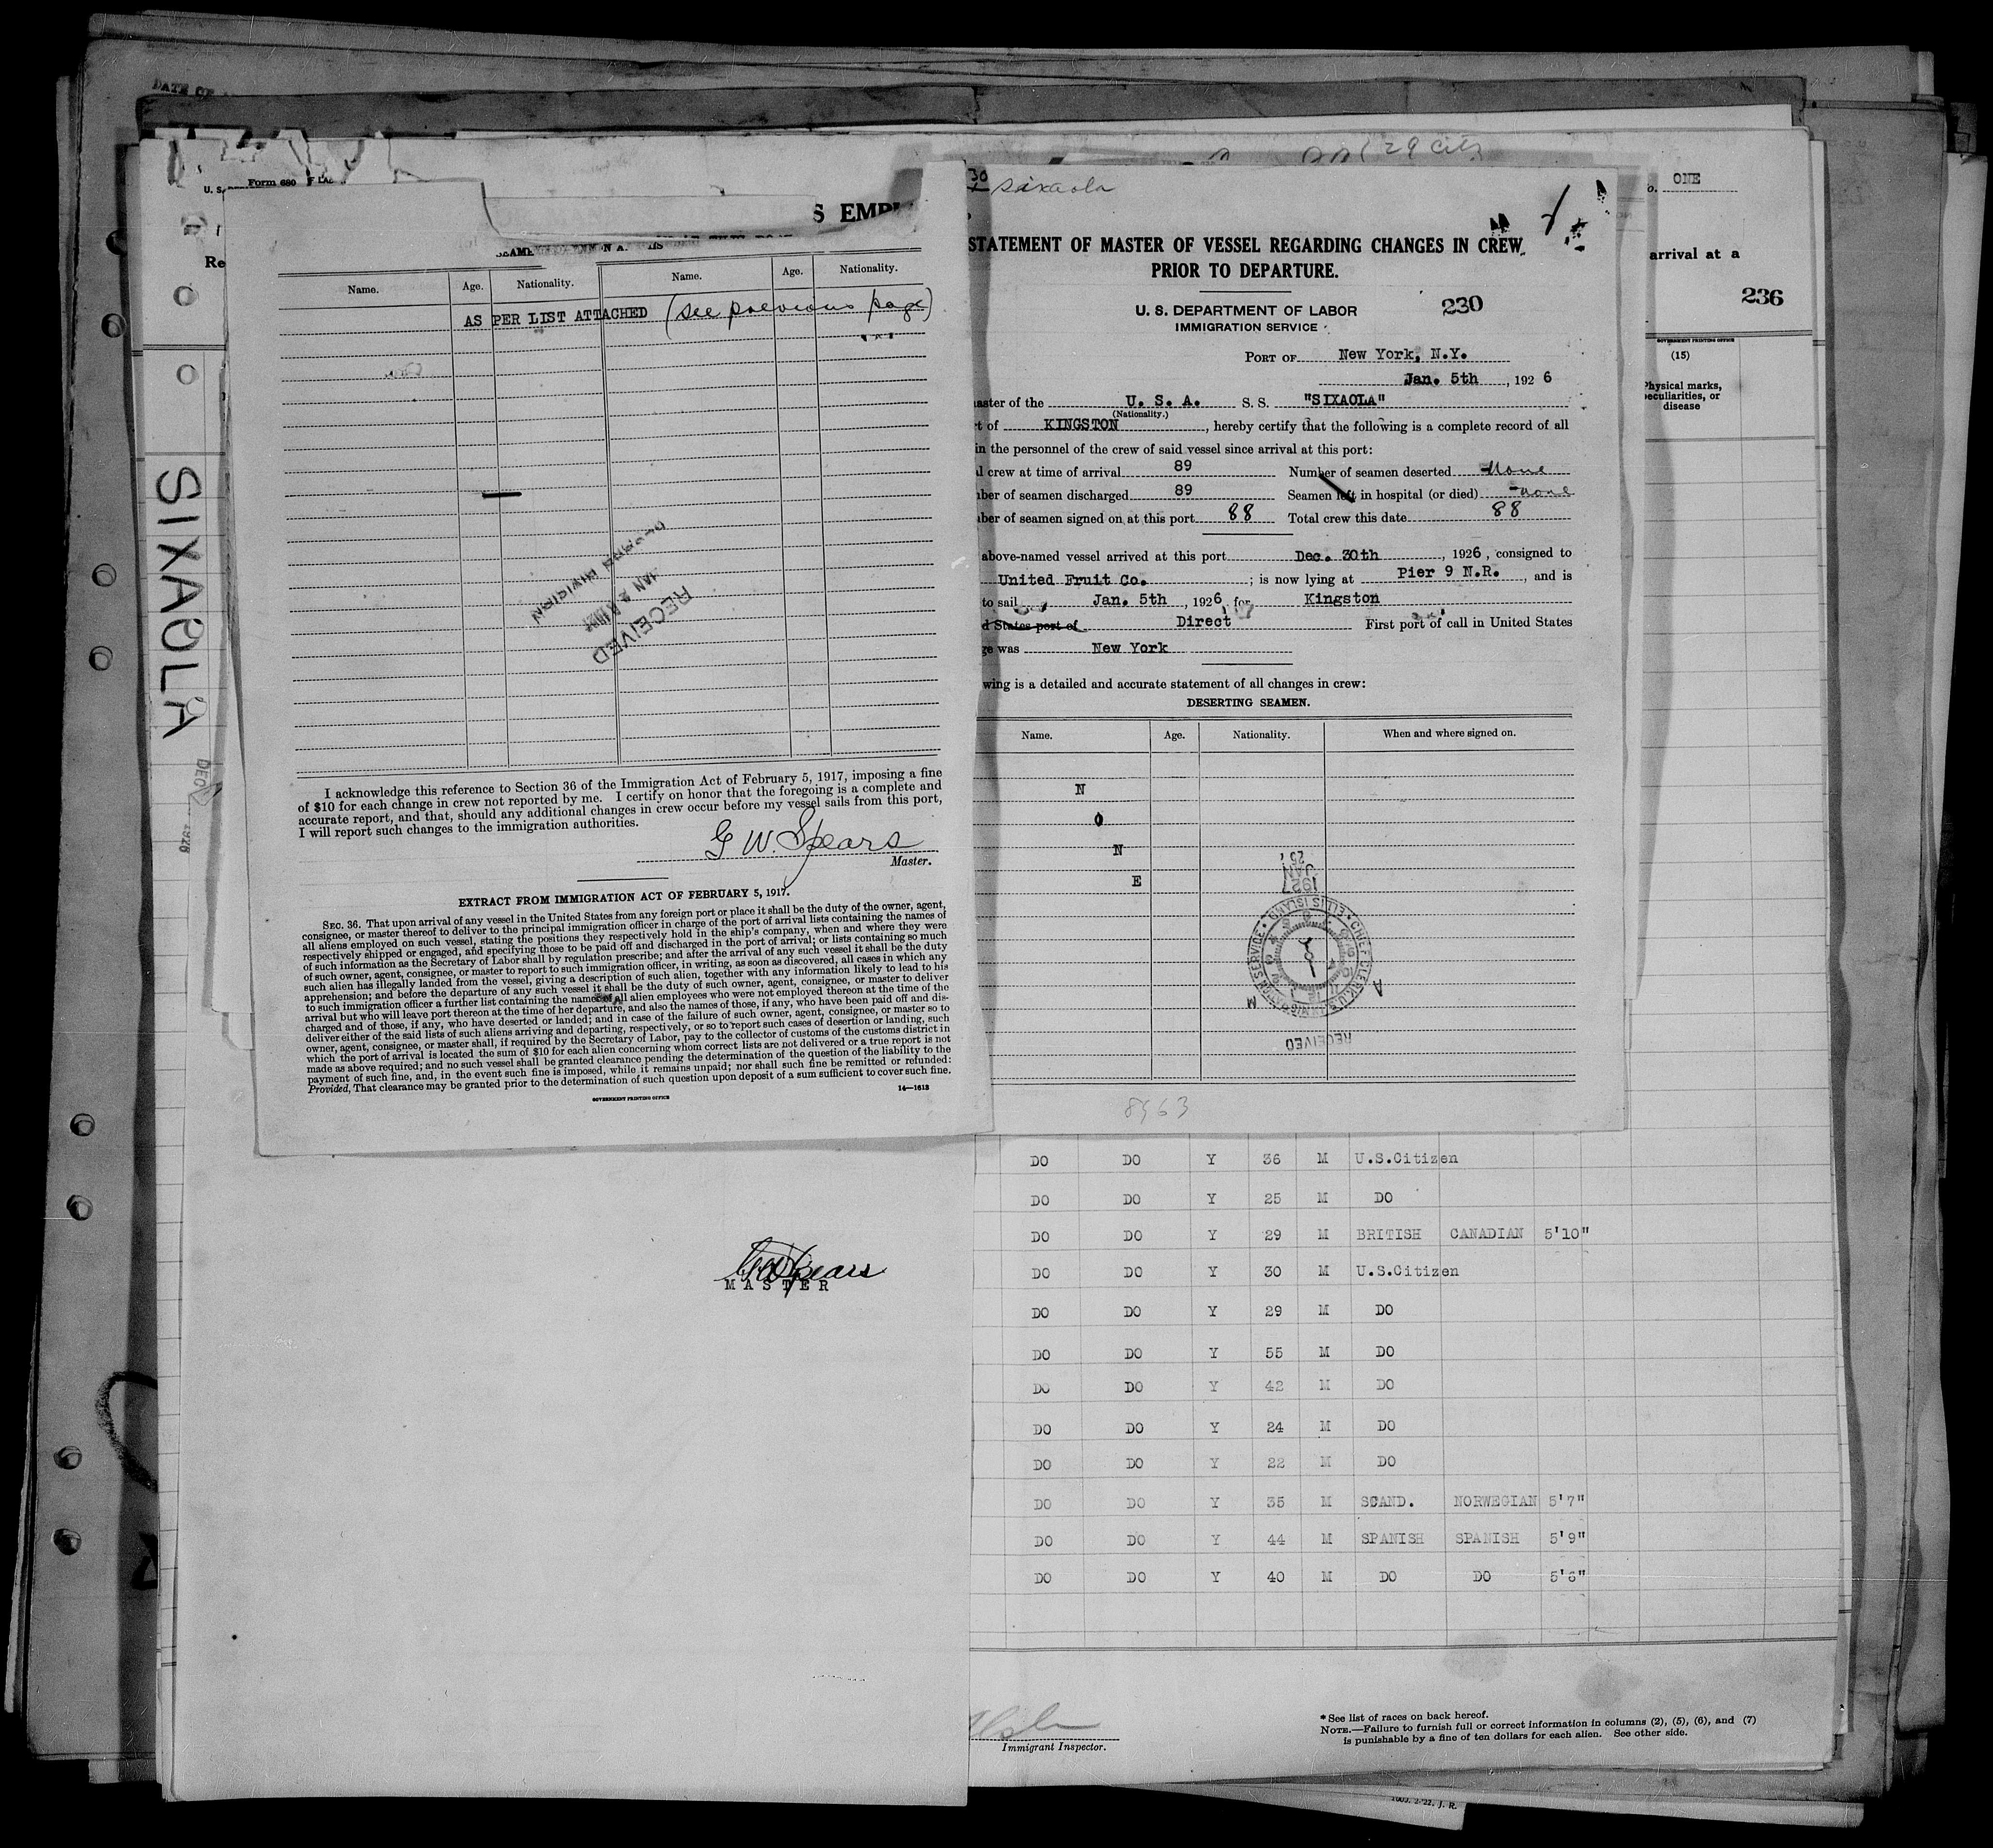 DATE OF
29 City
U. S.
Form 680
Re
SIXAOLA
DEC 1926
S EMPL
Name.
Age.
Nationality.
Name.
Age.
Nationality.
AS PER LIST ATTACHED (see previous page)
RECEIVED
JAN 2
DIVISION
I acknowledge this reference to Section 36 of the Immigration Act of February 5, 1917, imposing a fine
of $10 for each change in crew not reported by me. I certify on honor that the foregoing is a complete and
accurate report, and that, should any additional changes in crew occur before my vessel sails from this port,
I will report such changes to the immigration authorities.
G W. Spears
Master.
EXTRACT FROM IMMIGRATION ACT OF FEBRUARY 5, 1917.
SEC. 36. That upon arrival of any vessel in the United States from any foreign port or place it shall be the duty of the owner, agent,
consignee, or master thereof to deliver to the principal immigration officer in charge of the port of arrival lists containing the names of
all aliens employed on such vessel, stating the positions they respectively hold in the ship's company, when and where they were
respectively shipped or engaged, and specifying those to be paid off and discharged in the port of arrival; or lists containing so much
of such information as the Secretary of Labor shall by regulation prescribe; and after the arrival of any such vessel it shall be the duty
of such owner, agent, consignee, or master to report to such immigration officer, in writing, as soon as discovered, all cases in which any
such alien has illegally landed from the vessel, giving a description of such alien, together with any information likely to lead to his
apprehension; and before the departure of any such vessel it shall be the duty of such owner, agent, consignee, or master to deliver
to such immigration officer a further list containing the names of all alien employees who were not employed thereon at the time of the
arrival but who will leave port thereon at the time of her departure, and also the names of those, if any, who have been paid off and dis-
charged and of those, if any, who have deserted or landed; and in case of the failure of such owner, agent, consignee, or master so to
deliver either of the said lists of such aliens arriving and departing, respectively, or so to report such cases of desertion or landing, such
owner, agent, consignee, or master shall, if required by the Secretary of Labor, pay to the collector of customs of the customs district in
which the port of arrival is located the sum of $10 for each alien concerning whom correct lists are not delivered or a true report is not
made as above required; and no such vessel shall be granted clearance pending the determination of the question of the liability to the
payment of such fine, and, in the event such fine is imposed, while it remains unpaid; nor shall such fine be remitted or refunded:
Provided, That clearance may be granted prior to the determination of such question upon deposit of a sum sufficient to cover such fine.
14—1613
GOVERNMENT PRINTING OFFICE
GW Spears
MASTER
30
Sixaola
STATEMENT OF MASTER OF VESSEL REGARDING CHANGES IN CREW
PRIOR TO DEPARTURE.
U. S. DEPARTMENT OF LABOR
230
IMMIGRATION SERVICE
PORT OF New York, N.Y.
Jan. 5th, 1926
aster of the U. S. A. S. S. "SIXAOLA"
(Nationality.)
t of KINGSTON, hereby certify that the following is a complete record of all
in the personnel of the crew of said vessel since arrival at this port:
l crew at time of arrival 89 Number of seamen deserted None
ber of seamen discharged 89 Seamen left in hospital (or died) none
ber of seamen signed on at this port 88 Total crew this date 88
above-named vessel arrived at this port Dec. 30th, 1926, consigned to
United Fruit Co.; is now lying at Pier 9 N.R., and is
to sail Jan. 5th, 1926, for Kingston
d States port of Direct First port of call in United States
ge was New York
wing is a detailed and accurate statement of all changes in crew:
DESERTING SEAMEN.
Name. Age. Nationality. When and where signed on.
N
O
N
E
1927 JAN 25
CHIEF CLERK U.S. IMMIGRATION SERVICE • ELLIS ISLAND •
A M
RECEIVED
8963
No. ONE
arrival at a
236
GOVERNMENT PRINTING OFFICE
(15)
Physical marks,
peculiarities, or
disease
DO DO Y 36 M U.S.Citizen
DO DO Y 25 M DO
DO DO Y 29 M BRITISH CANADIAN 5'10"
DO DO Y 30 M U.S.Citizen
DO DO Y 29 M DO
DO DO Y 55 M DO
DO DO Y 42 M DO
DO DO Y 24 M DO
DO DO Y 22 M DO
DO DO Y 35 M SCAND. NORWEGIAN 5'7"
DO DO Y 44 M SPANISH SPANISH 5'9"
DO DO Y 40 M DO DO 5'6"
Immigrant Inspector.
*See list of races on back hereof.
NOTE.—Failure to furnish full or correct information in columns (2), (5), (6), and (7)
is punishable by a fine of ten dollars for each alien. See other side.